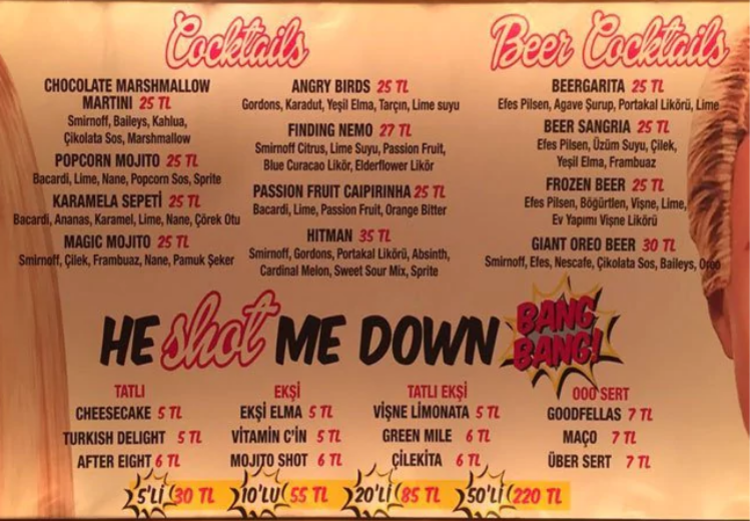 Cocktails
CHOCOLATE MARSHMALLOW
MARTINI 25 TL
Smirnoff, Baileys, Kahlua,
Çikolata Sos, Marshmallow
POPCORN MOJITO 25 TL
Bacardi, Lime, Nane, Popcorn Sos, Sprite
KARAMELA SEPETİ 25 TL
Bacardi, Ananas, Karamel, Lime, Nane, Çörek Otu
MAGIC MOJITO 25 TL
Smirnoff, Çilek, Frambuaz, Nane, Pamuk Şeker
ANGRY BIRDS 25 TL
Gordons, Karadut, Yeşil Elma, Tarçın, Lime suyu
FINDING NEMO 27 TL
Smirnoff Citrus, Lime Suyu, Passion Fruit,
Blue Curacao Likör, Elderflower Likör
PASSION FRUIT CAIPIRINHA 25 TL
Bacardi, Lime, Passion Fruit, Orange Bitter
HITMAN 35 TL
Smirnoff, Gordons, Portakal Likörü, Absinth,
Cardinal Melon, Sweet Sour Mix, Sprite
Beer Cocktails
BEERGARITA 25 TL
Efes Pilsen, Agave Şurup, Portakal Likörü, Lime
BEER SANGRIA 25 TL
Efes Pilsen, Üzüm Suyu, Çilek,
Yeşil Elma, Frambuaz
FROZEN BEER 25 TL
Efes Pilsen, Böğürtlen, Vişne, Lime,
Ev Yapımı Vişne Likörü
GIANT OREO BEER 30 TL
Smirnoff, Efes, Nescafe, Çikolata Sos, Baileys, Oreo
HE shot ME DOWN BANG
BANG!
TATLI
CHEESECAKE 5 TL
TURKISH DELIGHT 5 TL
AFTER EIGHT 6 TL
EKŞİ
EKŞİ ELMA 5 TL
VİTAMİN C'İN 5 TL
MOJİTO SHOT 6 TL
TATLI EKŞİ
VİŞNE LİMONATA 5 TL
GREEN MILE 6 TL
ÇİLEKİTA 6 TL
OOO SERT
GOODFELLAS 7 TL
MAÇO 7 TL
ÜBER SERT 7 TL
5'Lİ 30 TL 10'LU 55 TL 20'Lİ 85 TL 50'Lİ 220 TL